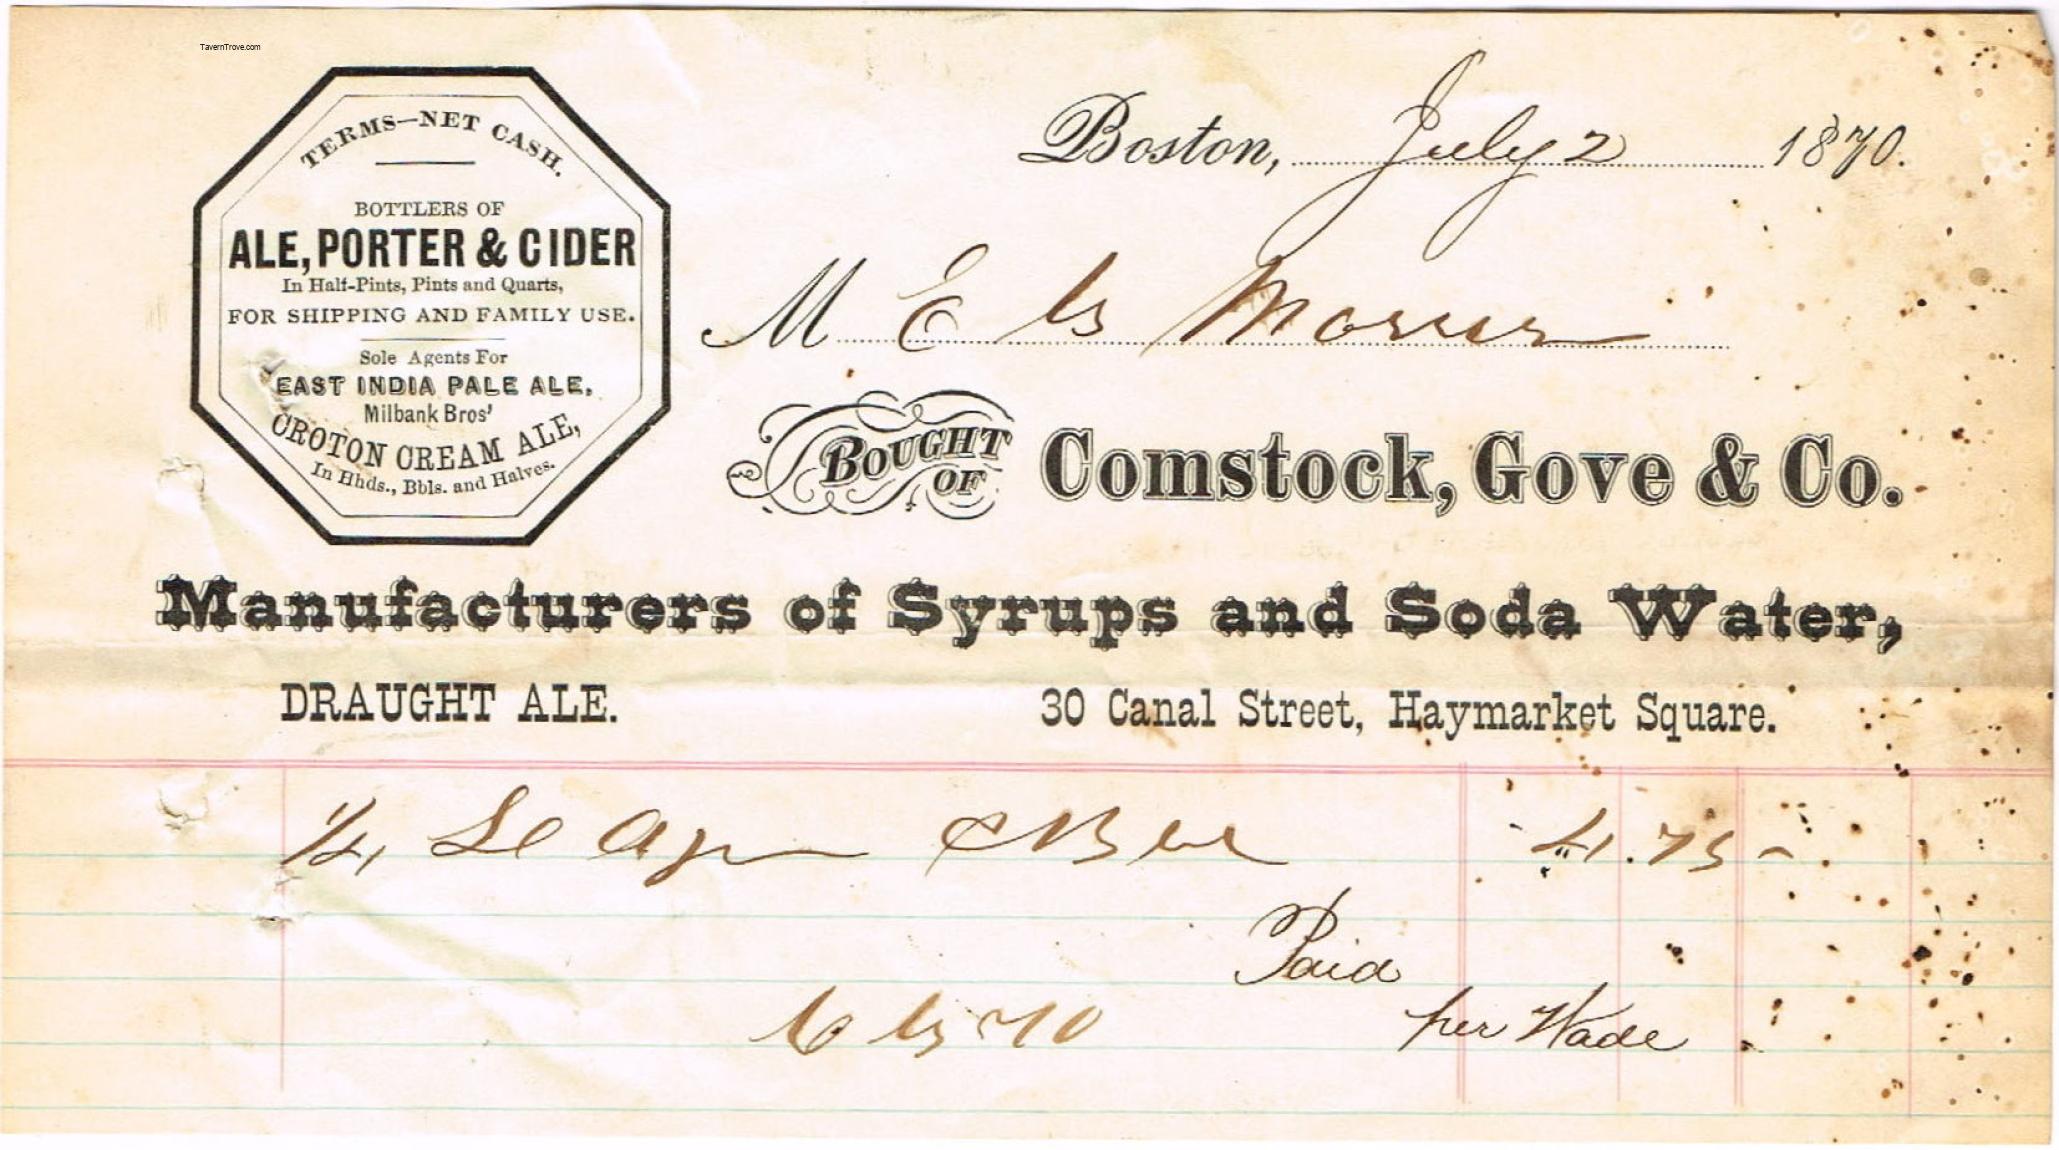 TavernTrove.com
TERMS—NET CASH.
BOTTLERS OF
ALE, PORTER & CIDER
In Half-Pints, Pints and Quarts,
FOR SHIPPING AND FAMILY USE.
Sole Agents For
EAST INDIA PALE ALE,
Milbank Bros'
CROTON CREAM ALE,
In Hhds., Bbls. and Halves.
Boston, July 2 1870.
M E
BOUGHT OF Comstock, Gove & Co.
Manufacturers of Syrups and Soda Water,
DRAUGHT ALE.
30 Canal Street, Haymarket Square.
4.75
Paid
per Wade